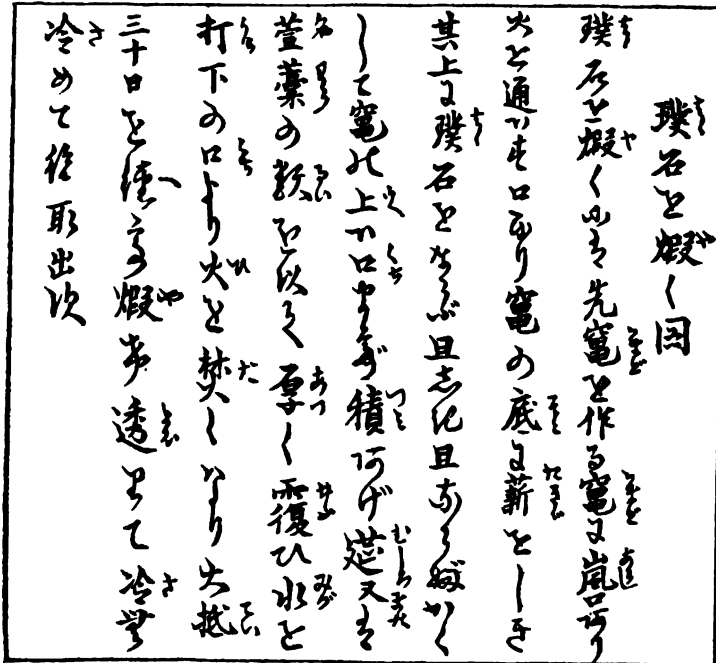 璞石を煆く図
璞石を煆くには先竃を作る竃に嵐口あり
火を通はす口なり竃の底に薪をしき
其上に璞石をならぶ且しき且ならぶかく
して竃の上の口まで積あげ莚又は
萱藁の類を以て厚く覆ひ水を
打下の口より火を焚くなり大抵
三十日を経て煆 透りて冷
冷めて後取出す